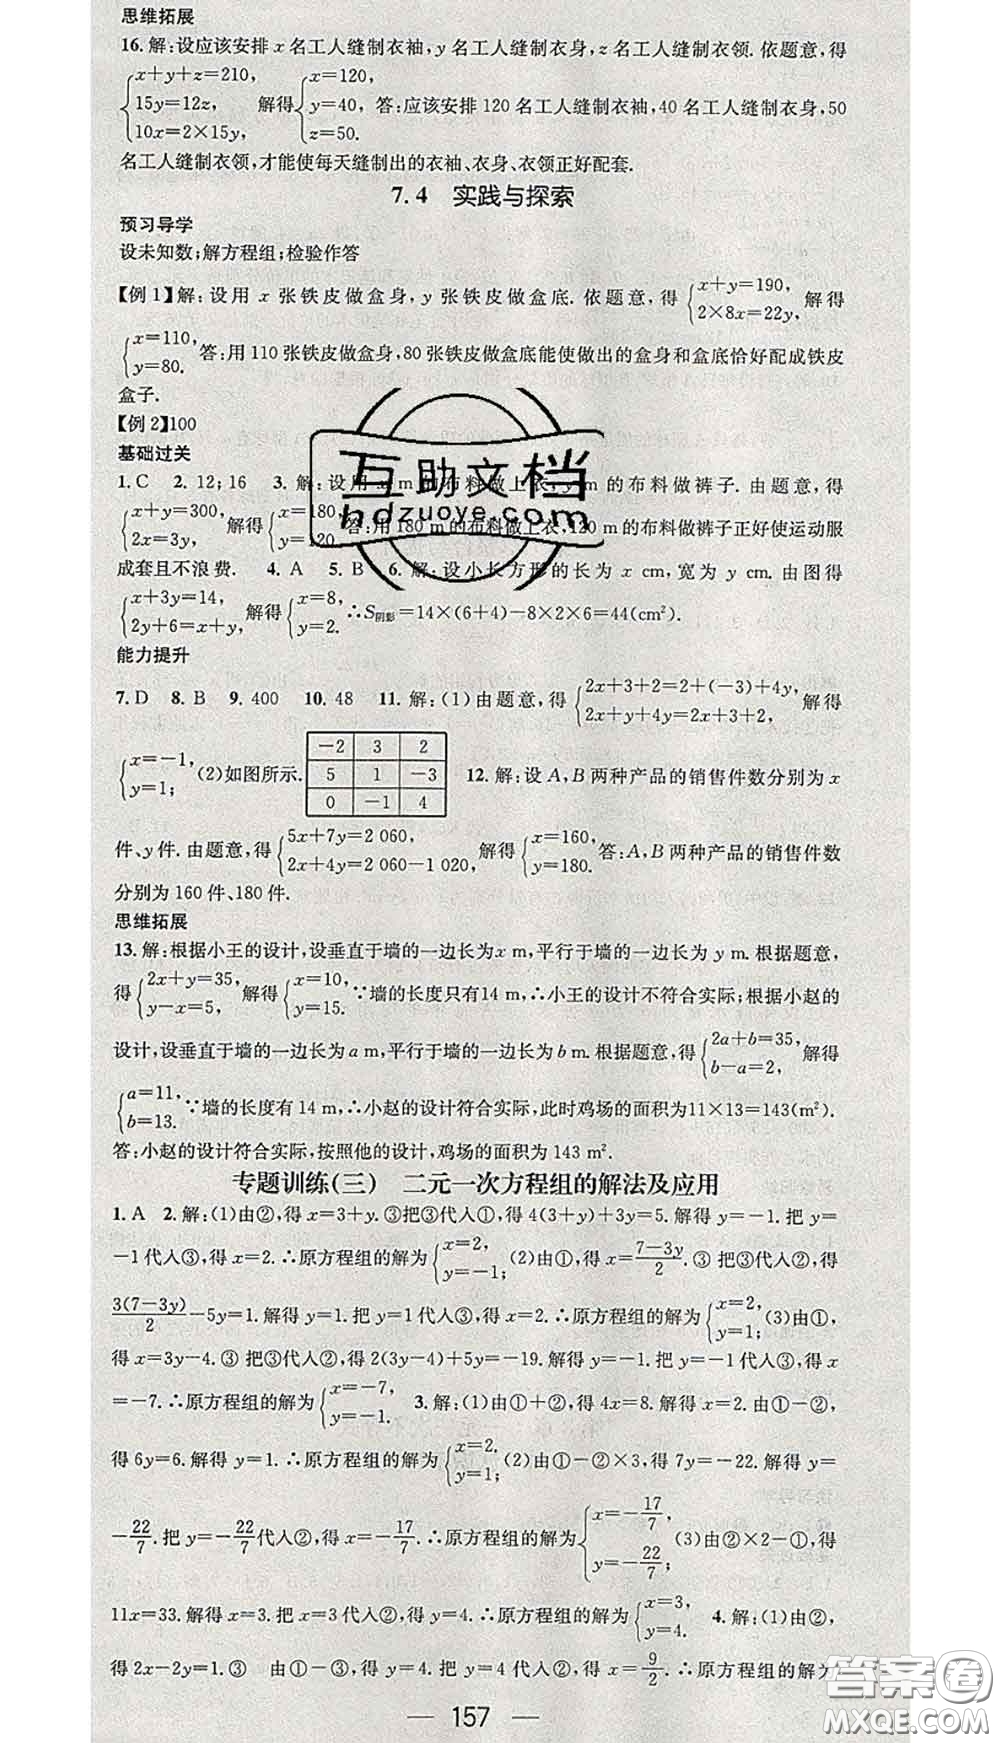 思维拓展
16. 解:设应该安排 x 名工人缝制衣袖, y 名工人缝制衣身, z 名工人缝制衣领. 依题意, 得
{x+y+z=210, 15y=12z, 10x=2×15y, 解得 {x=120, y=40, z=50. 答:应该安排 120 名工人缝制衣袖, 40 名工人缝制衣身, 50
名工人缝制衣领, 才能使每天缝制出的衣袖、衣身、衣领正好配套.
7.4 实践与探索
预习导学
设未知数;解方程组;检验作答
【例 1】解:设用 x 张铁皮做盒身, y 张铁皮做盒底. 依题意, 得 {x+y=190, 2×8x=22y, 解得
{x=110, y=80. 答:用 110 张铁皮做盒身, 80 张铁皮做盒底能使做出的盒身和盒底恰好配成铁皮
盒子.
【例 2】100
基础过关
1. C 2. 12; 16 3. 解:设用 x m 的布料做上衣, y m 的布料做裤子. 由题意, 得
{x+y=300, 2x=3y, 解得 {x=180, y=120. 答:用 180 m 的布料做上衣, 120 m 的布料做裤子正好使运动服
成套且不浪费. 4. A 5. B 6. 解:设小长方形的长为 x cm, 宽为 y cm. 由图得
{x+3y=14, 2y+6=x+y, 解得 {x=8, y=2. ∴S阴影=14×(6+4)-8×2×6=44(cm²).
能力提升
7. D 8. B 9. 400 10. 48 11. 解:(1)由题意, 得 {2x+3+2=2+(-3)+4y, 2x+y+4y=2x+3+2, 解得
{x=-1, y=1; (2)如图所示. -2 3 2 5 1 -3 0 -1 4 12. 解:设 A, B 两种产品的销售件数分别为 x
件、y 件. 由题意, 得 {5x+7y=2 060, 2x+4y=2 060-1 020, 解得 {x=160, y=180. 答:A, B 两种产品的销售件数
分别为 160 件、180 件.
思维拓展
13. 解:根据小王的设计, 设垂直于墙的一边长为 x m, 平行于墙的一边长为 y m. 根据题意,
得 {2x+y=35, y-x=5, 解得 {x=10, y=15. ∵墙的长度只有14 m, ∴小王的设计不符合实际;根据小赵的
设计, 设垂直于墙的一边长为 a m, 平行于墙的一边长为 b m. 根据题意, 得 {2a+b=35, b-a=2, 解得
{a=11, b=13. ∵墙的长度有 14 m, ∴小赵的设计符合实际, 此时鸡场的面积为11×13=143(m²).
答:小赵的设计符合实际, 按照他的设计, 鸡场的面积为 143 m².
专题训练(三) 二元一次方程组的解法及应用
1. A 2. 解:(1)由②, 得 x=3+y. ③把③代入①, 得 4(3+y)+3y=5. 解得 y=-1. 把 y=
-1代入③, 得 x=2. ∴原方程组的解为 {x=2, y=-1; (2)由①, 得 x=(7-3y)/2. ③ 把③代入②, 得
3(7-3y)/2-5y=1. 解得 y=1. 把 y=1 代入③, 得 x=2. ∴原方程组的解为 {x=2, y=1; (3)由①,
得 x=3y-4. ③ 把③代入②, 得 2(3y-4)+5y=-19. 解得 y=-1. 把 y=-1 代入③, 得 x
=-7. ∴原方程组的解为 {x=-7, y=-1. 3. 解:(1)由①+②, 得 4x=8. 解得 x=2. 由①-②,
得 6y=6. 解得 y=1. ∴原方程组的解为 {x=2. y=1; (2)由①-②×3, 得 7y=-22. 解得 y=
-22/7. 把 y=-22/7代入②, 得 x=-17/7. ∴原方程组的解为 {x=-17/7, y=-22/7; (3)由②×2-①, 得
11x=33. 解得 x=3. 把 x=3 代入②, 得 y=4. ∴原方程组的解为 {x=3, y=4. 4. 解:(1)由②,
得 2x-2y=1. ③ 由①-③, 得 y=4. 把 y=4 代入②, 得 x=9/2. ∴原方程组的解为
157
互助文档
hdzuoye.com
答案圈
MXQE.COM